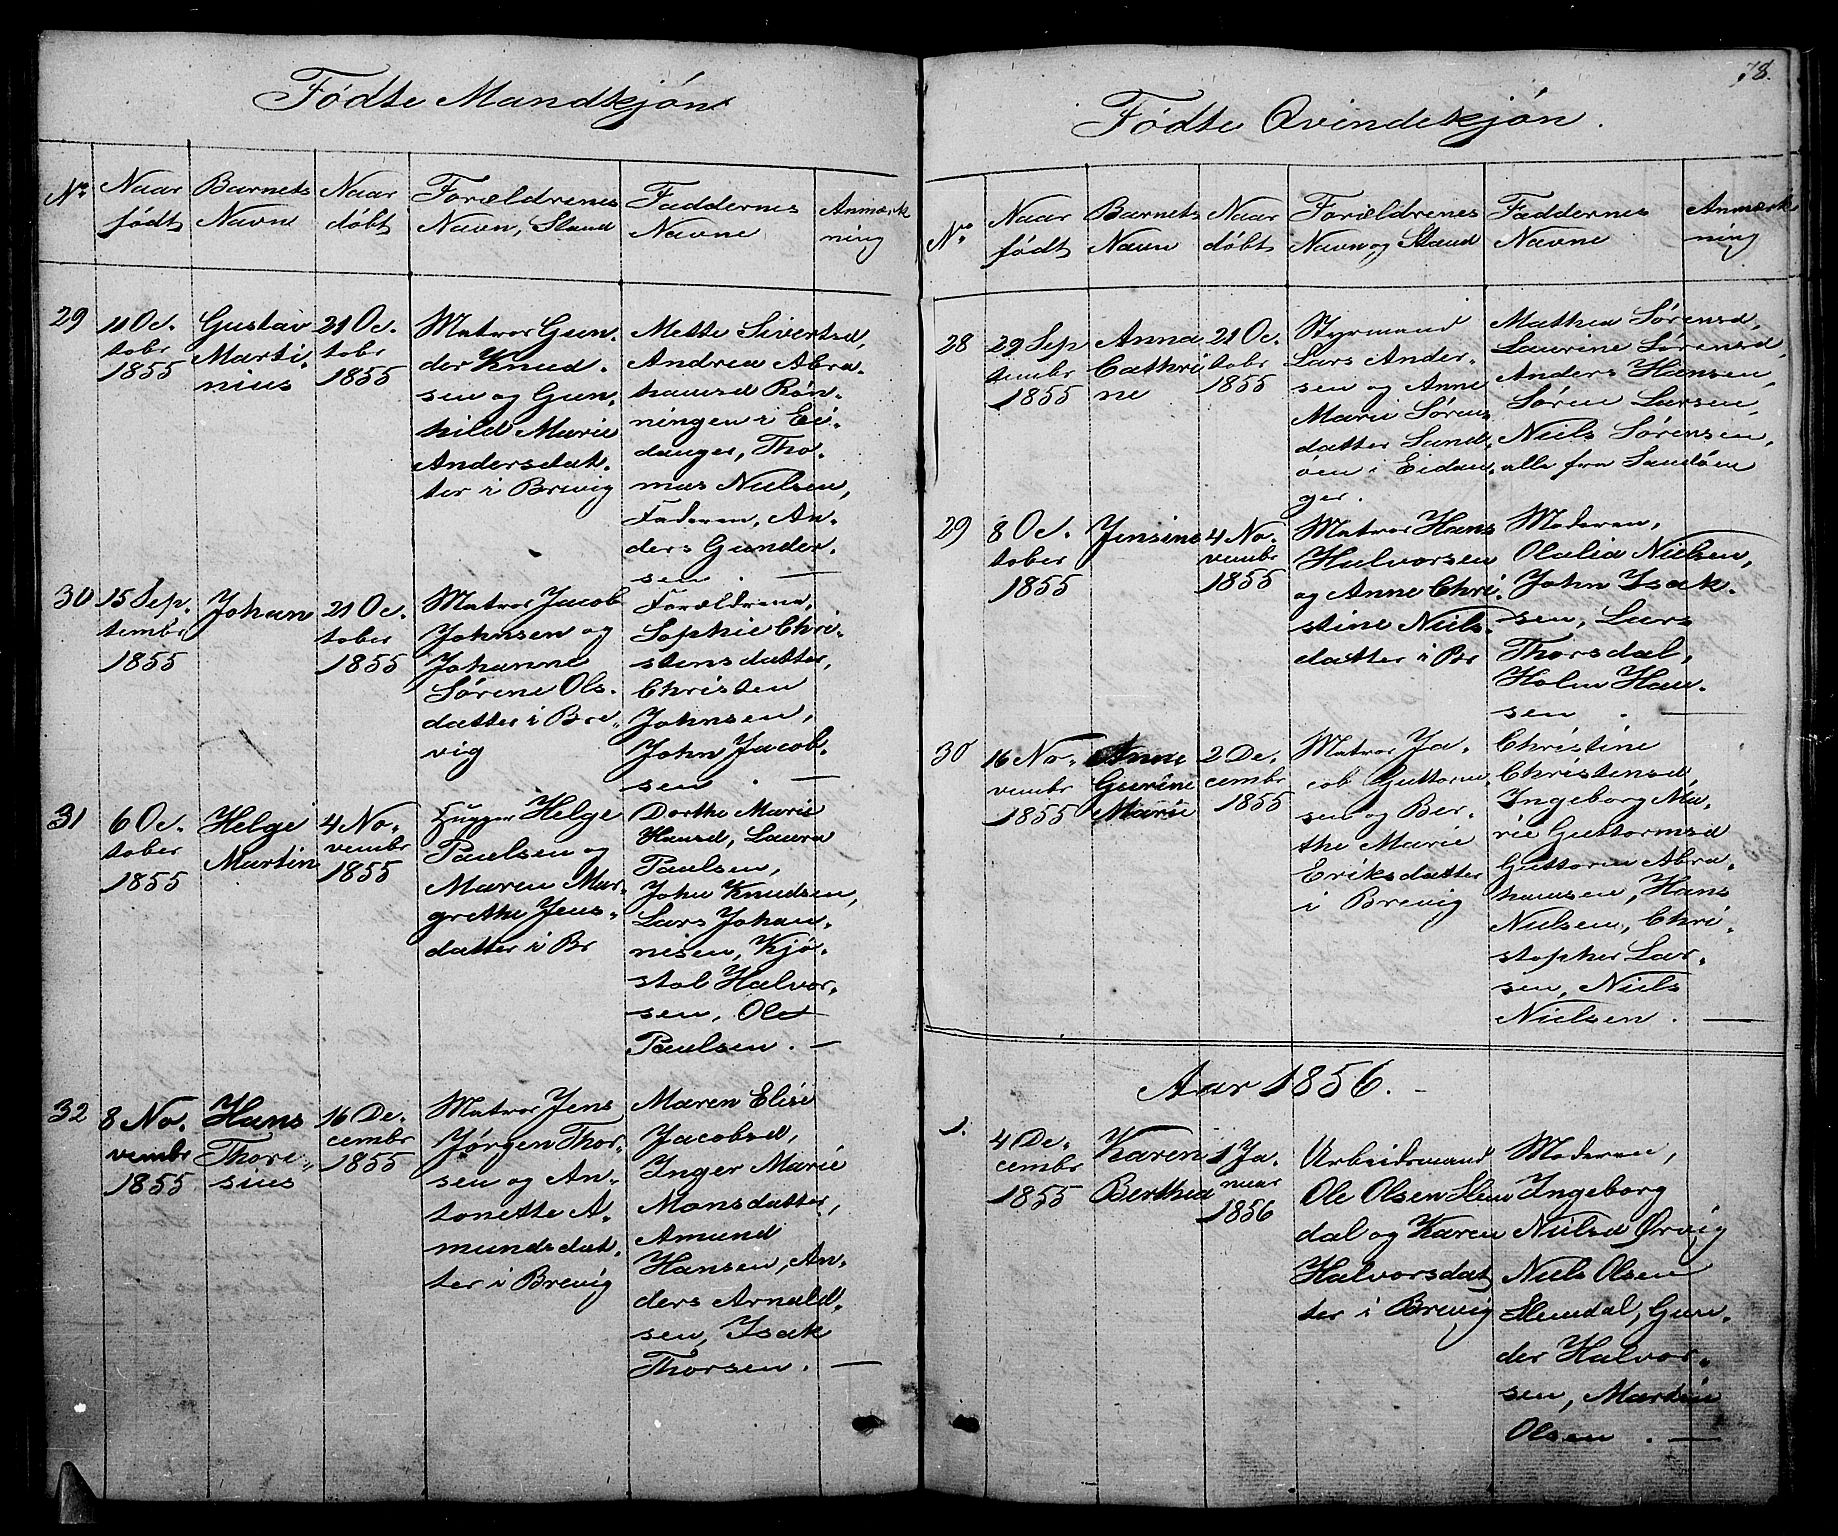 Fødte Mandkjøn
No
Naar
født
Barnets
Navn
Naar
døbt
Forældrenes
Navn, Stand
Faddernes
Navne
Anmærk
ning
29
11 Oc.
tobr
1855
Gustav
Marti-
nius
21 Oc.
tobr
1855
Matros Gun-
der Knud-
sen og Gun-
hild Marie
Andersdat-
ter i Brevig
Mette Sivertsd,
Andrea Abra-
hamsd Røn-
ningen i Ei-
danger, Tho-
mas Nielsen,
Faderen, An-
ders Gunder-
sen. —
30
15 Sep.
tembr
1855
Johan
21 Oc.
tober
1855
Matros Jacob
Johnsen og
Johanne
Sørene Ols-
datter i Bre-
vig
Forældrene,
Sophie Chri-
stensdatter,
Christen
Johnsen,
John Jacob-
sen. —
31
6 Oc.
tober
1855
Helge
Martin
4 No-
vembr
1855
Hugger Helge
Paulsen og
Maren Mar-
grethe Jens-
datter i Br
Dorthe Marie
Hansd, Laura
Paulsen,
John Knudsen,
Lars Johan-
nisen, Kjø-
stol Halvor-
sen, Ole
Paulsen. —
32
8 No.
vembr
1855
Hans
Thore-
sius
16 De-
cembr
1855
Matros Jens
Jørgen Thor-
sen og An-
tonette A-
mundsdat-
ter i Brevig
Maren Elise
Jacobsd,
Inger Marie
Monsdatter,
Amund
Hansen, An-
ders Arnald-
sen, Isak
Thorsen. —
78.
Fødte Qvindekjøn.
No
Naar
født
Barnets
Navn
Naar
døbt
Forældrenes
Navn og Stand
Faddernes
Navne
Anmærk
ning
28
29 Sep
tembr
1855
Anna
Cathri
ne
21 Oc.
tobr
1855
Styrmand
Lars Ander-
sen og Anne
Marie Sørens
datter Sand-
øen i Eidan-
ger.
Mathea Sørensd,
Laurine Sørensd,
Anders Hansen,
Søren Larsen,
Niels Sørensen,
alle fra Sandøen
29
8 Oc.
tober
1855
Jensine
4 No-
vembr
1855
Matros Hans
Halvorsen
og Anne Chri-
stine Niels-
datter i Br
Moderen,
Olalia Nielsen,
John Isak-
sen, Lars
Thorsdal,
Holm Han-
sen. —
30
16 No-
vembr
1855
Anne
Gurine
Marie
2 De-
cembr
1855
Matros Ja-
cob Guttorm-
sen og Ber-
the Marie
Eriksdatter
i Brevig
Christine
Christensd,
Ingeborg Ma-
rie Guttormsd
Guttorm Abra-
hamsen, Hans
Nielsen, Chri-
stopher Lar-
sen, Niels
Nielsen. —
Aar 1856. -
1.
4 De-
cembr
1855
Karen
Berthea
1 Ja-
nuar
1856
Arbeidsmand
Ole Olsen Slem
dal og Karen
Halvorsdat
ter i Brevig
Moderen,
Ingeborg
Nielsd Ørvig
Niels Olsen
Slemdal, Gun-
der Halvor-
sen, Martin
Olsen. —